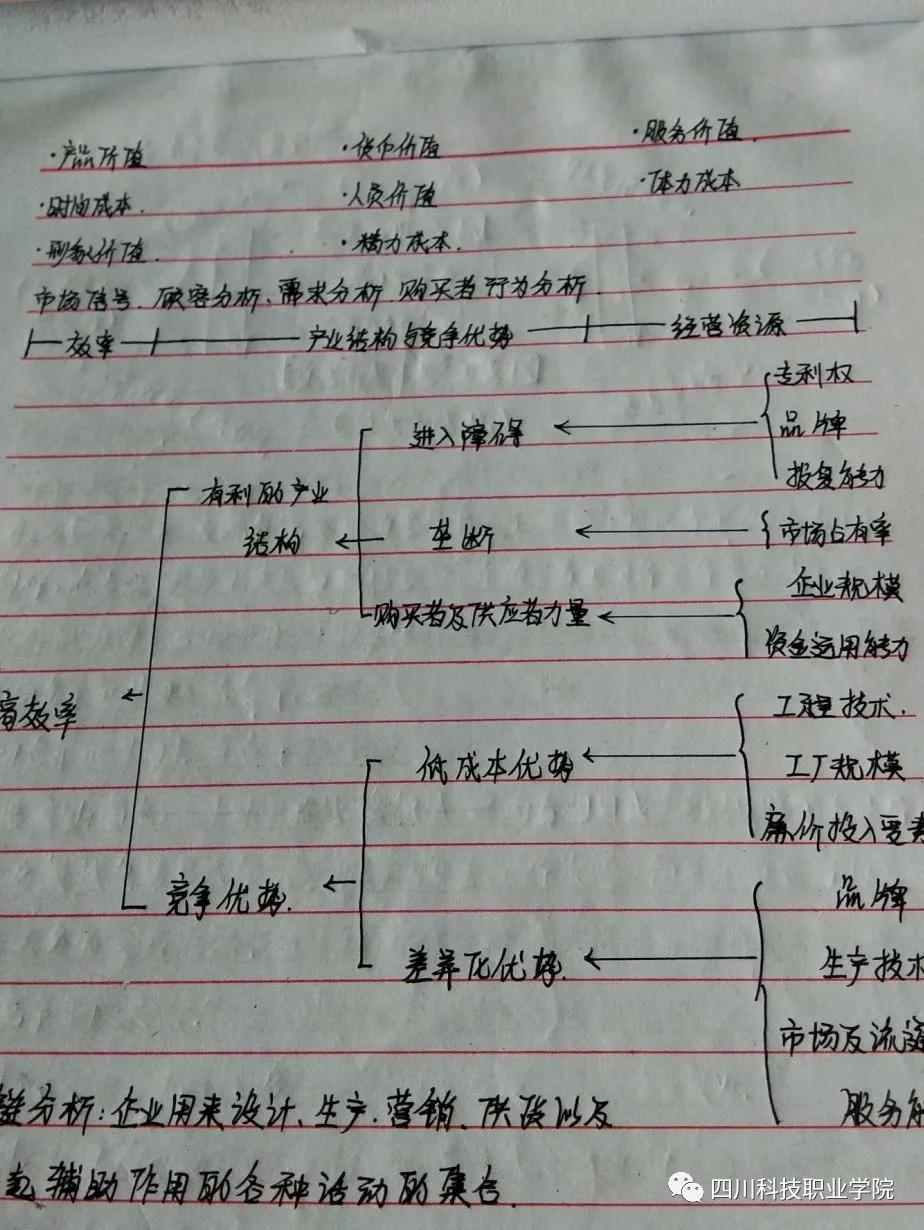 ·产品价值 ·货币价值 ·服务价值.
·时间成本. ·人员价值 ·体力成本
·形象价值. ·精力成本.
市场信号.顾客分析、需求分析.购买者行为分析.
效率 产业结构与竞争优势 经营资源
专利权
进入障碍 品牌
报复能力
有利的产业
结构 垄断 市场占有率
企业规模
购买者及供应者力量
资金运用能力
高效率
工程技术.
低成本优势 工厂规模
廉价投入要素
竞争优势. 品牌
差异化优势. 生产技术
市场及流通
服务能
链分析:企业用来设计、生产.营销、供货以及
起辅助作用的各种活动的集合.
四川科技职业学院